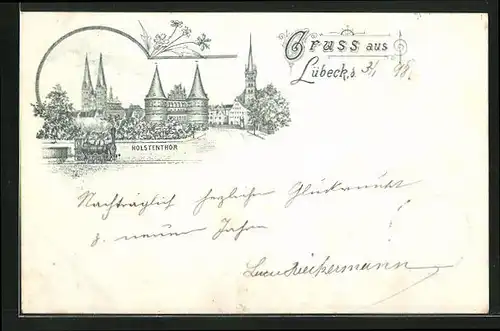 Gruss aus
Lübeck, d. 3/1 98.
HOLSTENTHOR
Nachträglich herzlichen Glückwunsch
z. neuen Jahre
Dieckermann